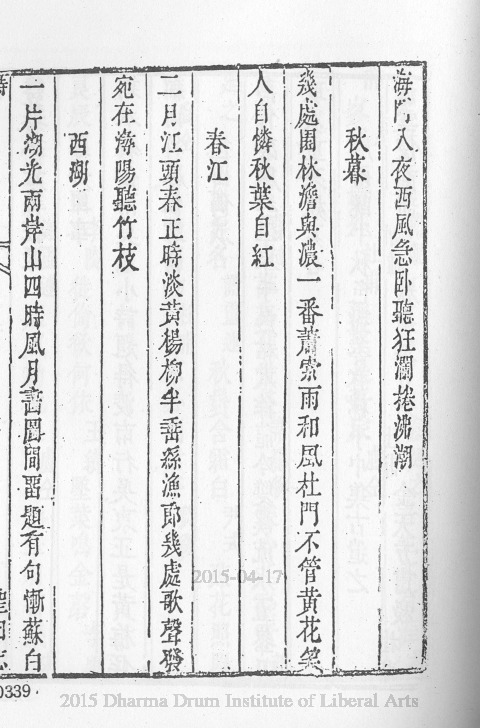 海門入夜西風急臥聽狂瀾捲沸潮
秋暮
幾處園林澹與濃一番蕭索雨和風杜門不管黃花笑
人自憐秋葉自紅
春江
二月江頭春正時淡黃楊柳半垂絲漁郎幾處歌聲發
宛在潯陽聽竹枝
西湖
一片湖光兩岸山四時風月畫圖間留題有句慚蘇白
0339
2015-04-17
2015 Dharma Drum Institute of Liberal Arts